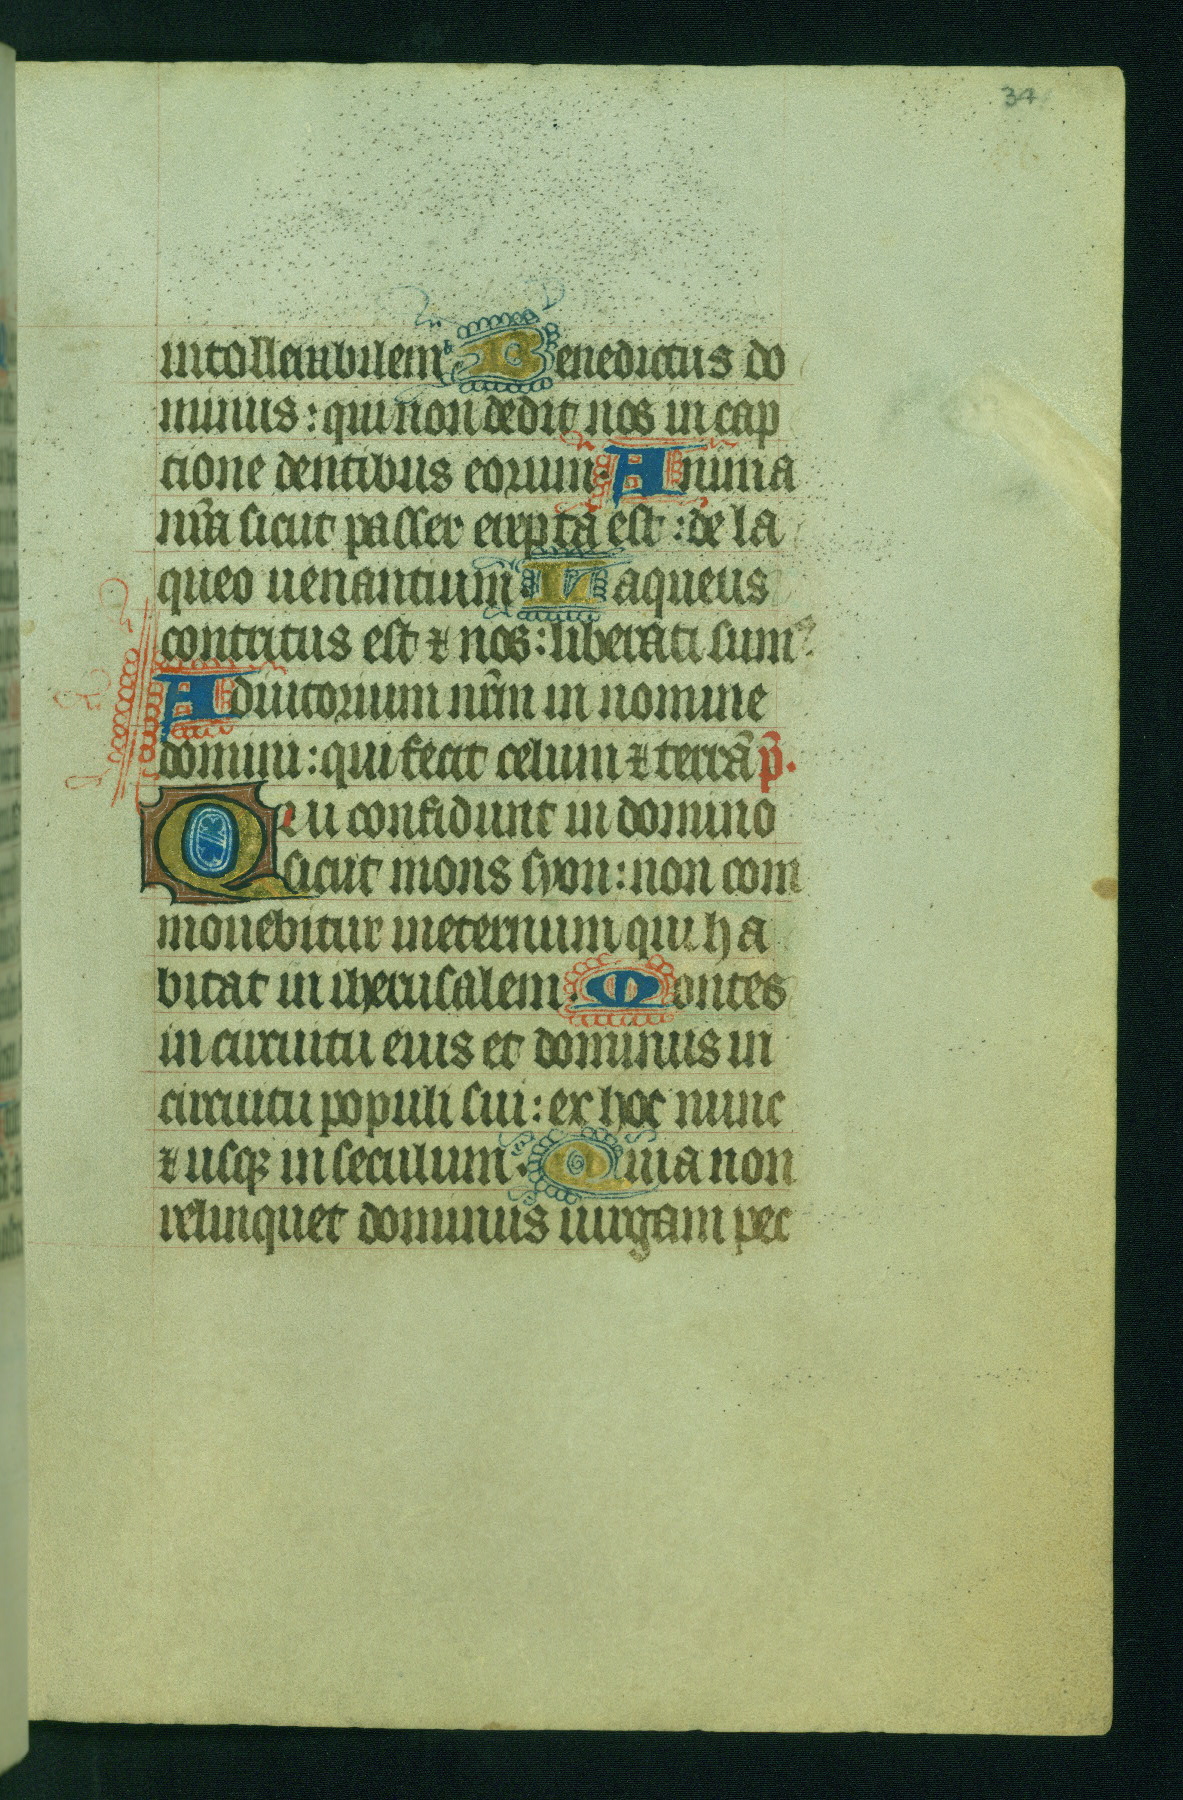 34
intollerabilem Benedictus do
minus : qui non dedit nos in cap
tione dentibus eorum. Anima
nr̃a sicut passer erepta est : de la
queo uenantium. Laqueus
contritus est ⁊ nos : liberati sumꝰ.
Adiutorium nr̃m in nomine
domini : qui fecit celum ⁊ terrã p̃.
Qui confidunt in domino
sicut mons syon : non com
mouebitur in eternum qui ha
bitat in iherusalem. Montes
in circuitu eius et dominus in
circuitu populi sui : ex hoc nunc
⁊ usqꝫ in seculum. Quia non
relinquet dominus uirgam pec